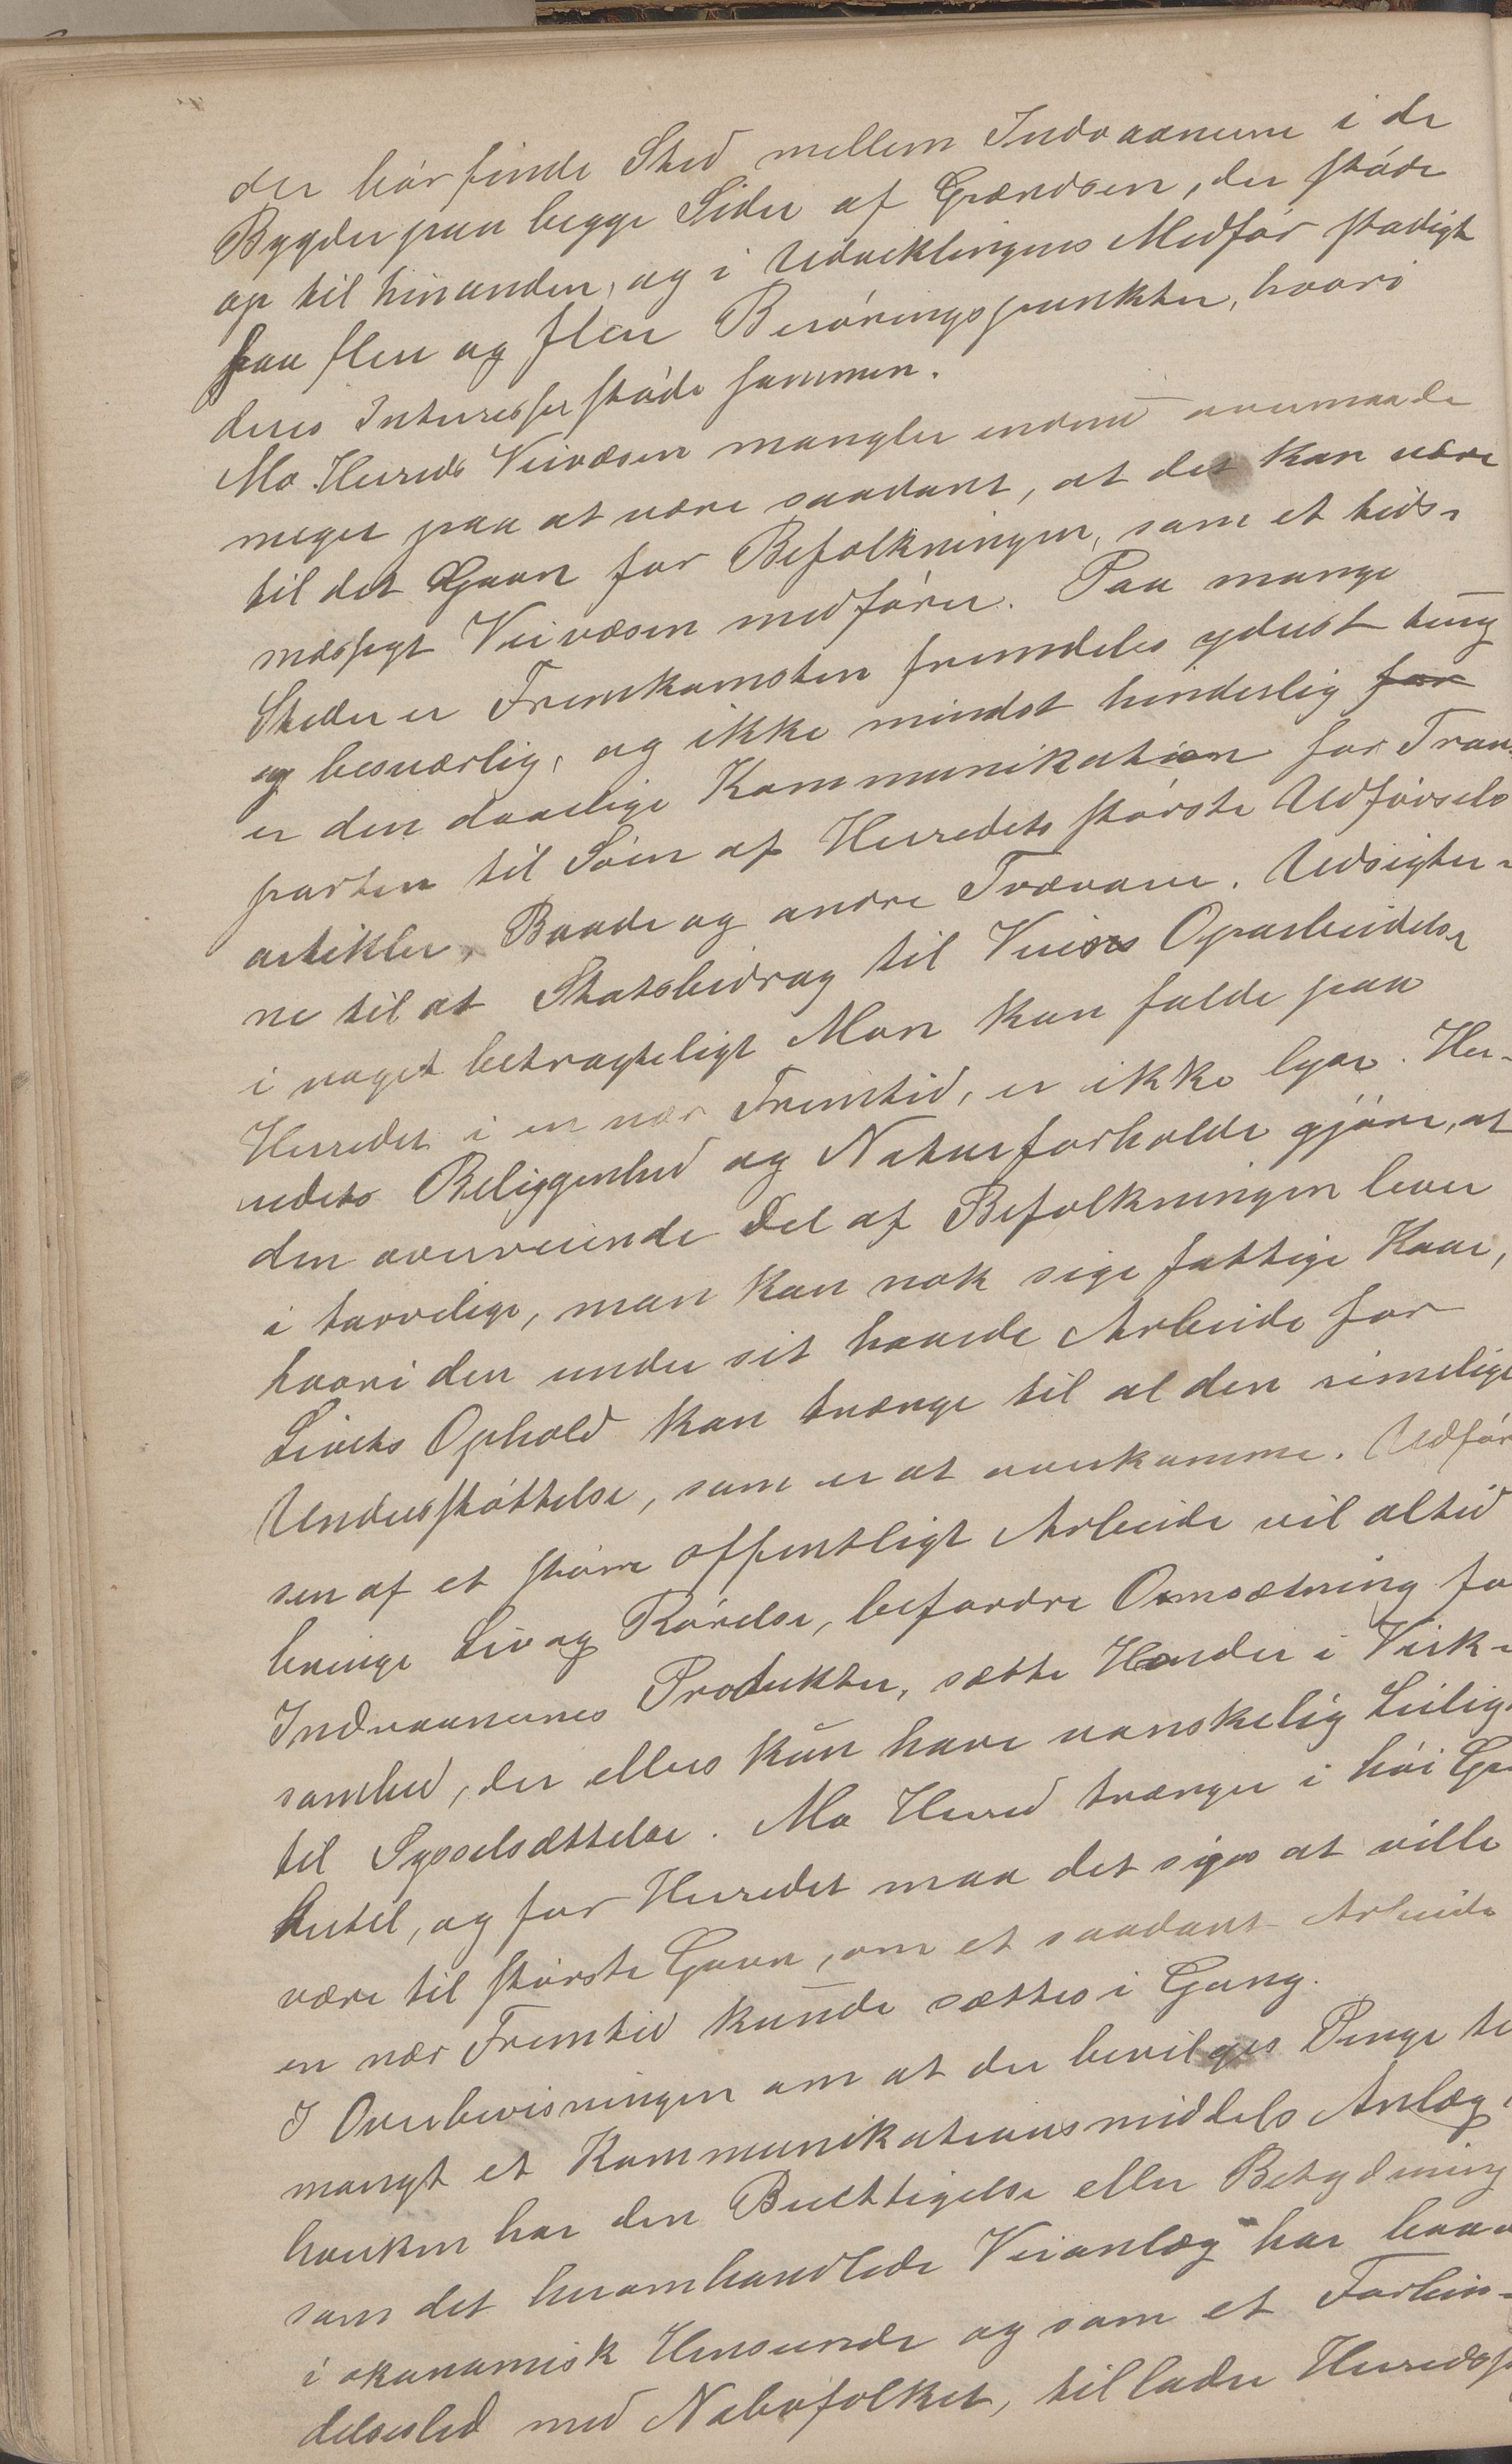 der bør finde Sted mellem Indvaanerne i de
Bygder paa begge Sider af Grændsen, der støde
op til hinanden, og i Udviklingens Medfør stadigt
faa flere og flere Berøringspunkter, hvori
deres Interesser støde sammen.
Mo Herreds Veivæsen mangler endnu overmaade
meget paa at være saadant, at det kan være
til det Gavn for Befolkningen, som et tids-
mæssigt Veivæsen medfører. Paa mange
Steder er Fremkomsten fremdeles yderst tung
og besværlig, og ikke mindst hinderlig for
er den daarlige Kommunikation for Trans
porten til Søen af Herredets største Udførsels
artikler, Baade og andre Trævarer. Udsigter-
ne til at Statsbidrag til Veies Oparbeidelse
i noget betragteligt Mon kan falde paa
Herredet i en nær Fremtid, er ikke lyse. Her-
redets Beliggenhed og Naturforholde gjøre, at
den overveiende Del af Befolkningen lever
i tarvelige, man kan nok sige fattige Kaar,
hvori den under sit haarde Arbeide for
Livets Ophold kan trænge til al den rimelige
Understøttelse, som er at overkomme. Udfør
sen af et større offentligt Arbeide vil altid
bringe Liv og Rørelse, befordre Omsætning fo
Indvaanernes Produkter, sætte Hænder i Virk-
somhed, der ellers kun have vanskelig Leilig
til Sysselsættelse. Mo Herred trænger i høi Gr
hertil, og for Herredet maa det siges at ville
være til største Gavn, om et saadant Arbeide
en nær Fremtid kunde sættes i Gang.
I Overbevisningen om at der bevilges Penge ti
mangt et Kommunikationsmiddels Anlæg,
hverken har den Berettigelse eller Betydning
som det heromhandlede Veianlæg har baad
i økonomisk Henseende og som et Forbin-
delsesled med Nabofolket, tillader Herredsst